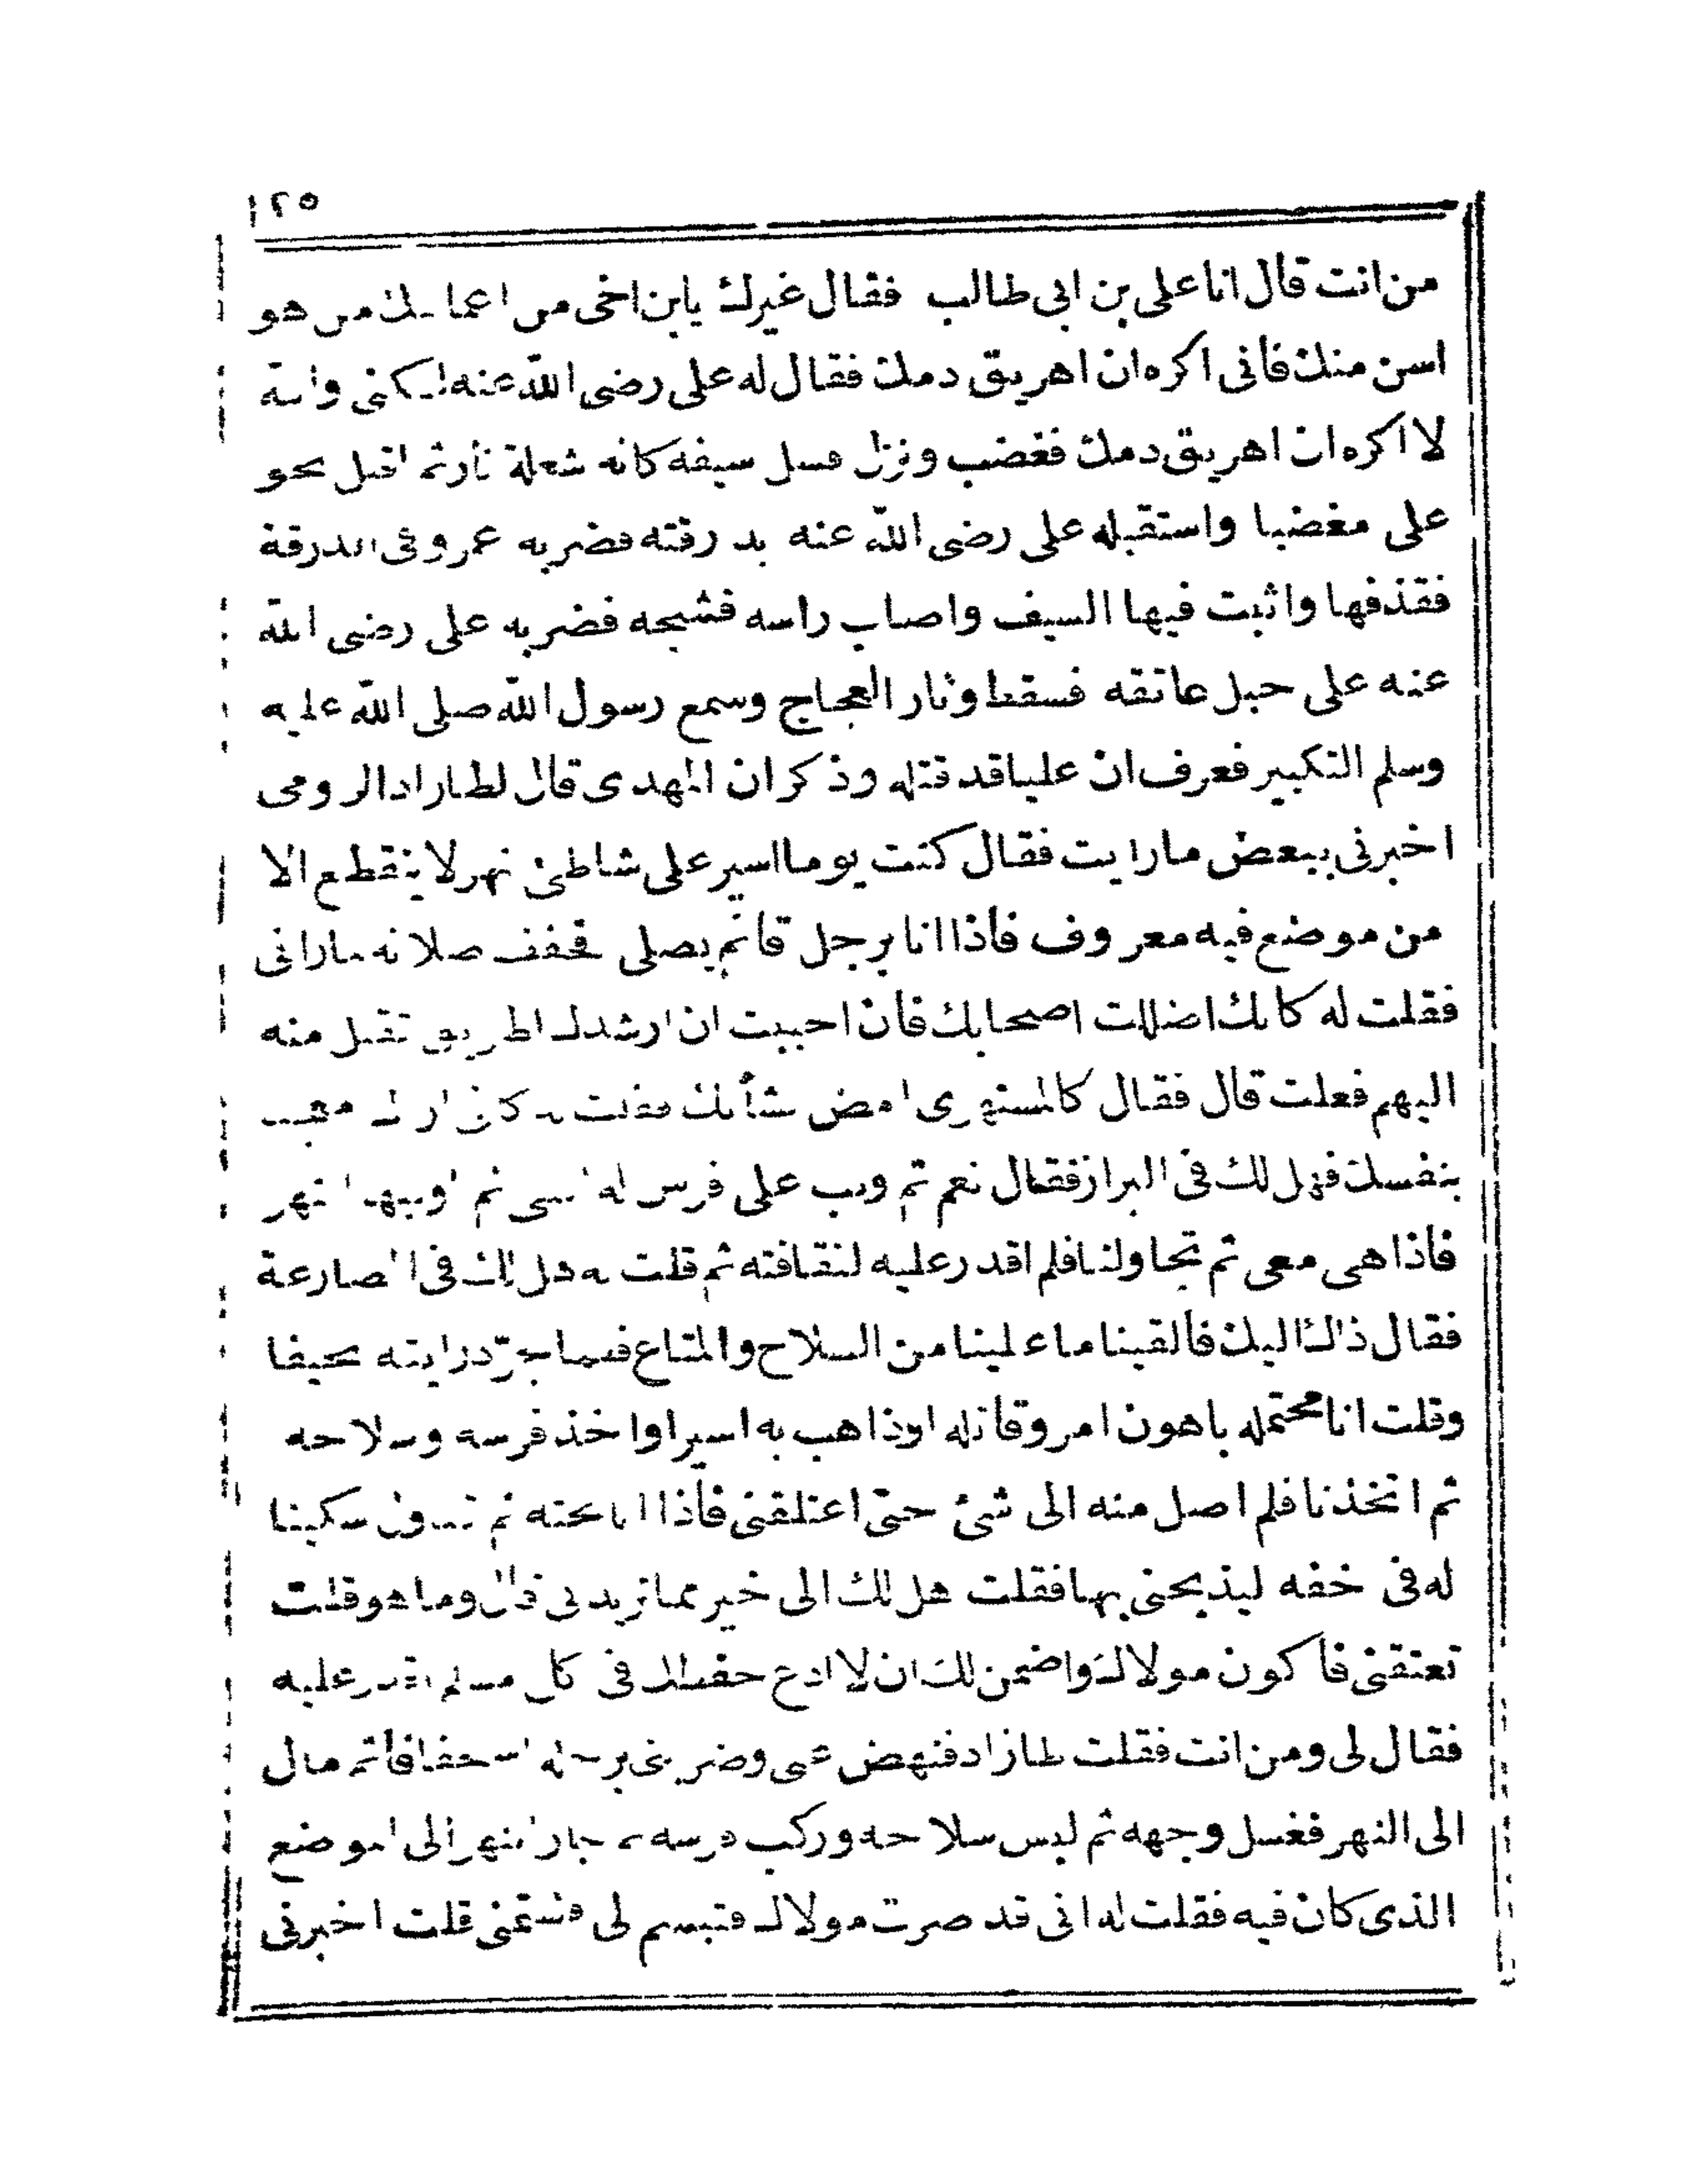 ١٢٥
من انت قال انا على بن ابى طالب فقال غيرك يابن اخى من اعمامك من هو
اسن منك فانى اكره ان اهريق دمك فقال له على رضى الله عنه لكنى والله
لا اكره ان اهريق دمك فغضب ونزل فسل سيفه كانه شعلة نار ثم اقبل نحو
على مغضبا واستقبله على رضى الله عنه بدرقته فضربه عمرو فى الدرقة
فقذفها واثبت فيها السيف واصاب راسه فشجه فضربه على رضى الله
عنه على حبل عاتقه فسقط وثار العجاج وسمع رسول الله صلى الله عليه
وسلم التكبير فعرف ان عليا قد قتله وذكر ان المهدى قال لطاراد الرومى
اخبرنى ببعض مارايت فقال كنت يوما اسير على شاطئ نهر لا ينقطع الا
من موضع فيه معروف فاذا انا برجل قائم يصلى فخفف صلاته لمارانى
فقلت له كانك اضللت اصحابك فان احببت ان ارشدك الطريق تقبل منه
اليهم فعلت قال فقال كالمستهزى امض شأنك فقلت
بنفسك فهل لك فى البراز فقال نعم ثم وثب على فرس له ثم النهر
فاذا هى معى ثم تجاولنا فلم اقدر عليه لنقافته ثم قلت له هل لك فى المصارعة
فقال ذلك اليك فالقينا ما علينا من السلاح والمتاع فلما تجرد رايته نحيفا
وقلت انا محتمله باهون امر وقاتله او ذاهب به اسيرا واخذ فرسه وسلاحه
ثم اتخذنا فلم اصل منه الى شئ حتى اعتلقنى فاذا انا تحته ثم تناول سكينا
له فى خفه ليذبحنى بها فقلت هل لك الى خير مما تريد بى قال وما هو قلت
تعتقنى فاكون مولاك واضمن لك ان لا ادع حفظك فى كل مسلم اقدر عليه
فقال لى ومن انت فقلت طازاد فنهض عنى وضربنى برجله ثم مال
الى النهر فغسل وجهه ثم لبس سلاحه وركب فرسه ثم جاز النهر الى الموضع
الذى كان فيه فقلت له انى قد صرت مولاك فتبسم لى فشتمنى قلت اخبرنى